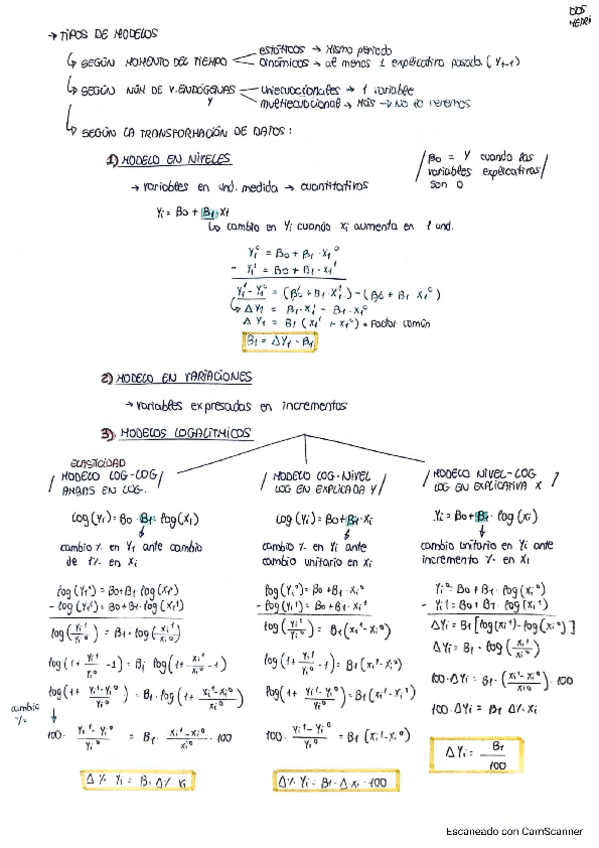 → TIPOS DE MODELOS
↳ SEGÚN MOMENTO DEL TIEMPO
estáticos → Mismo periodo
Dinámicos → al menos 1 explicativa pasada (Yt-1)
↳ SEGÚN NÚM DE V. ENDÓGENAS Y
Uniecuacionales → 1 variable
multiecuacional → Más → No lo veremos
↳ SEGÚN LA TRANSFORMACIÓN DE DATOS:
1) MODELO EN NIVELES
/ B0 = Y cuando las variables explicativas son 0 /
→ variables en und. medida → cuantitativas
Yi = B0 + B1·Xi
↳ cambio en Yi cuando Xi aumenta en 1 und.
Yi⁰ = B0 + B1·Xi⁰
- Yi¹ = B0 + B1·Xi¹
Yi¹-Yi⁰ = (B0 + B1·Xi¹) - (B0 + B1·Xi⁰)
↳ ΔYi = B1·Xi¹ - B1·Xi⁰
ΔYi = B1 (Xi¹ + Xi⁰) → Factor común
B1 = ΔYi - B1
2) MODELO EN VARIACIONES
→ variables expresadas en incrementos
3) MODELOS LOGALÍTMICOS
ELASTICIDAD
/ MODELO LOG-LOG
AMBAS EN LOG. /
log(Yi) = B0 · B1 · log(Xi)
cambio % en Yi ante cambio
de 1% en Xi
log(Yi⁰) = B0+B1·log(Xi⁰)
- log(Yi¹) = B0+B1·log(Xi¹)
log(Yi¹/Yi⁰) = B1·log(Xi¹/Xi⁰)
log(1+ Yi¹/Yi⁰ -1) = Bi log(1+ Xi¹/Xi⁰ -1)
log(1+ Yi¹-Yi⁰/Yi⁰) = B1·log(1+ Xi¹-Xi⁰/Xi⁰)
cambio %
100· Yi¹-Yi⁰/Yi⁰ = B1· Xi¹-Xi⁰/Xi⁰ ·100
Δ% Yi = B1 Δ% Xi
/ MODELO LOG-NIVEL
LOG EN EXPLICADA Y /
log(Yi) = B0+B1·Xi
cambio % en Yi ante
cambio unitario en Xi
log(Yi⁰) = B0+B1·Xi⁰
- log(Yi¹) = B0+B1·Xi¹
log(Yi¹/Yi⁰) = B1(Xi¹-Xi⁰)
log(1+ Yi¹/Yi⁰ -1) = B1(Xi¹-Xi⁰)
log(1+ Yi¹-Yi⁰/Yi⁰) = B1(Xi¹-Xi⁰)
100· Yi¹-Yi⁰/Yi⁰ = B1(Xi¹-Xi⁰)
Δ% Yi = B1·ΔXi·100
/ MODELO NIVEL-LOG
LOG EN EXPLICATIVA X /
Yi = B0+B1·log(Xi)
cambio unitario en Yi ante
incremento % en Xi
Yi⁰ = B0+B1·log(Xi⁰)
- Yi¹ = B0+B1·log(Xi¹)
ΔYi = B1[log(Xi¹)-log(Xi⁰)]
ΔYi = B1·log(Xi¹/Xi⁰)
100·ΔYi = B1·(Xi¹-Xi⁰/Xi⁰)·100
100·ΔYi = B1 Δ%Xi
ΔYi = B1/100
Escaneado con CamScanner